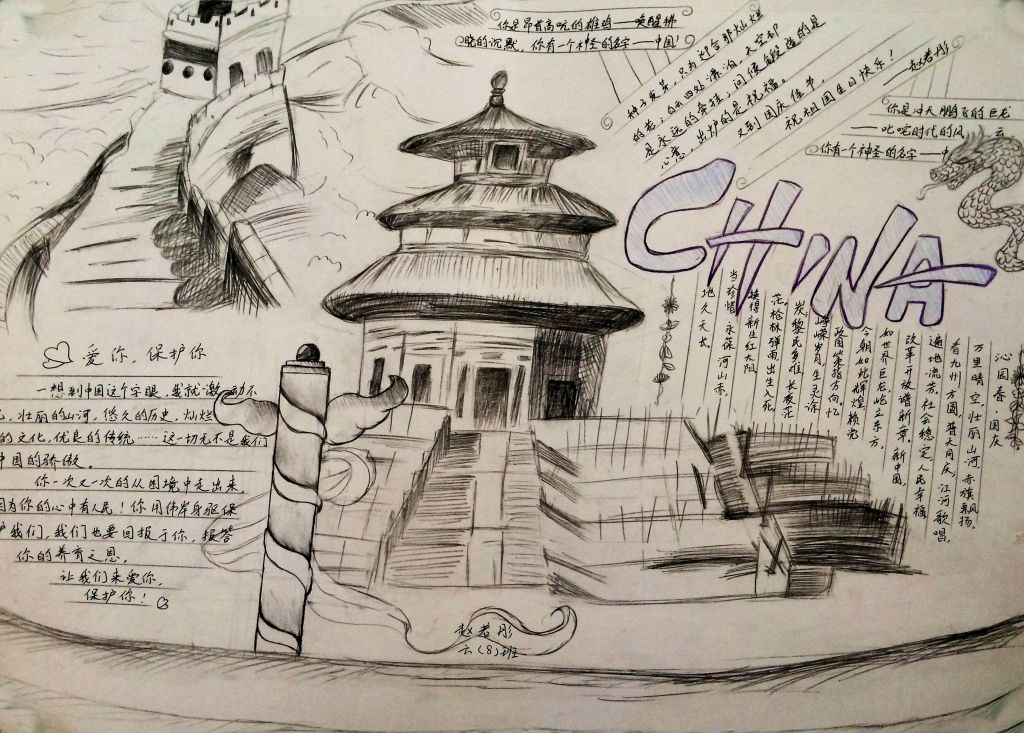 你是昂首高吭的雄鸡——唤醒拂
晓的沉默，你有一个神圣的名字——中国！
种子发芽，只为迎合那灿烂
的花；白云四处漂泊，天空却
是永远的牵挂；问候锻造的是
心意，出炉的是祝福。
又到国庆佳节，
祝祖国生日快乐！
——赵若彤
你是冲天鹏飞的巨龙
——叱咤时代的风 云
你有一个神圣的名字——中
CHINA
沁园春·国庆
万里晴空，壮丽山河，赤旗飘扬。
看九州方圆，普天同庆，江河歌唱，
遍地流芳。社会稳定，人民幸福
改革开放谱新章。新中国
如世界巨龙，屹立东方，
今朝如此辉煌，赖
政国策指方向。忆
峥嵘岁月，生灵涂
炭，黎民多难，长夜茫
茫。枪林弹雨，出生入死，
换得新生红太阳
当珍惜，永保河山赤，
地久天长
爱你，保护你
一想到中国这个字眼，我就激动不
，壮丽的山河，悠久的历史，灿烂
的文化，优良的传统……这一切无不是我们
中国的骄傲。
你一次又一次的从困境中走出来，
因为你的心中有人民！你用伟岸身躯保
护我们，我们也要回报于你，报答
你的养育之恩。
让我们来爱你，
保护你！
赵若彤
(8)班